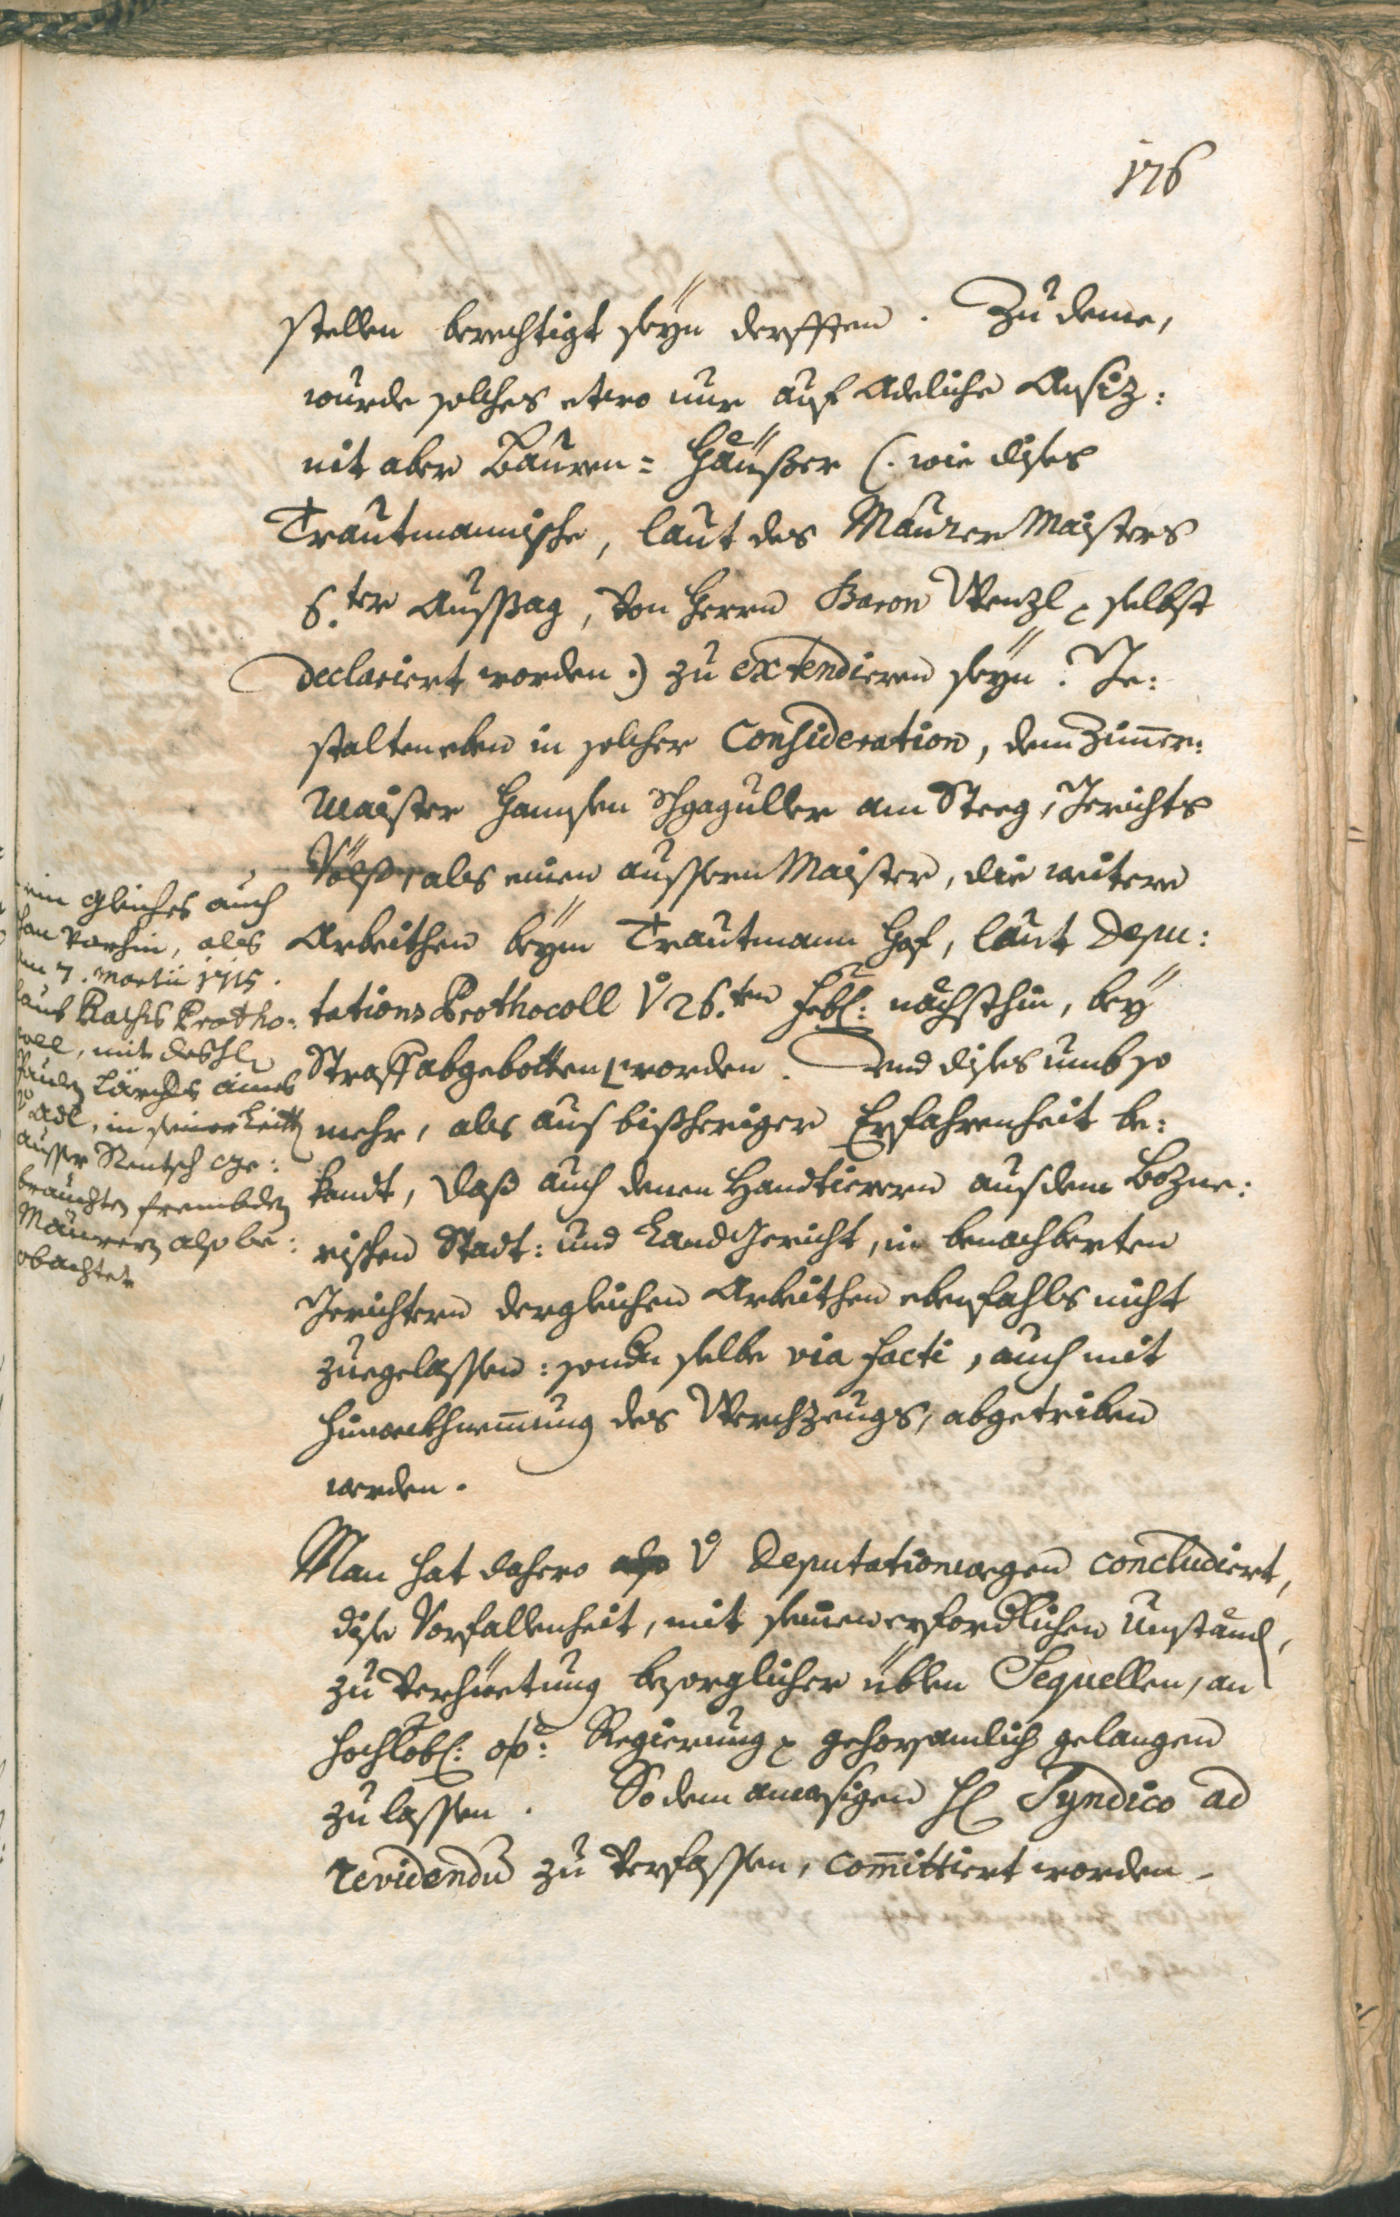 176
stellen berechtigt seÿn derfften. Zu deme,
wurde solches etwo nur auf Adeliche Ansiz:
nit aber Bauren= Heüßer (: wie dises
Trautmannische, laut des Maurer Maisters
6.ter Aussag, von Herrn Baron Wenzl selbst
declariert worden :) zu extendieren seÿn. Ge:
stalten eben in solcher Consideration, dem Zimer:
Maister Hannsen Schgaguller am Steeg, Gerichts
Völß, als einen aussern Maister, die weitere
Arbeithen beÿm Trautmann Hof, laut Depu:
tations Prothocoll v 26.ten Feb: nächsthin, beÿ
Straff abgebotten worden. Und dises umb so
mehr, als aus bißheriger Erfahrenheit be:
kandt, daß auch denen Handtierern aus dem Bozne:
rischen Stadt: und Land Gericht, in benachberten
Gerichtern dergleichen Arbeithen ebenfahls nicht
zuegelassen: sondn selbe via facti, auch mit
hinwekhnemung des Werchzeugs, abgetriben
werden.
Man hat dahero v Deputationwegen concludiert,
dise Vorfallenheit, mit seinen erfordlichen Umständ,
zu verhüetung besorglicher üblen Sequellen, an
hochlöbl: oö: Regierung gehorsamlich gelangen
zu lassen. So dem anwesigen H Syndico ad
revidendū zu verfassen, comittiert worden.
ein gleiches auch
von vorhin, als
7. Martii 1715.
laut Raths Protho:
coll, mit des H
in seiner Leith
ausser Rentsch ge:
brauchten frembden
Maurern also be:
obachtet